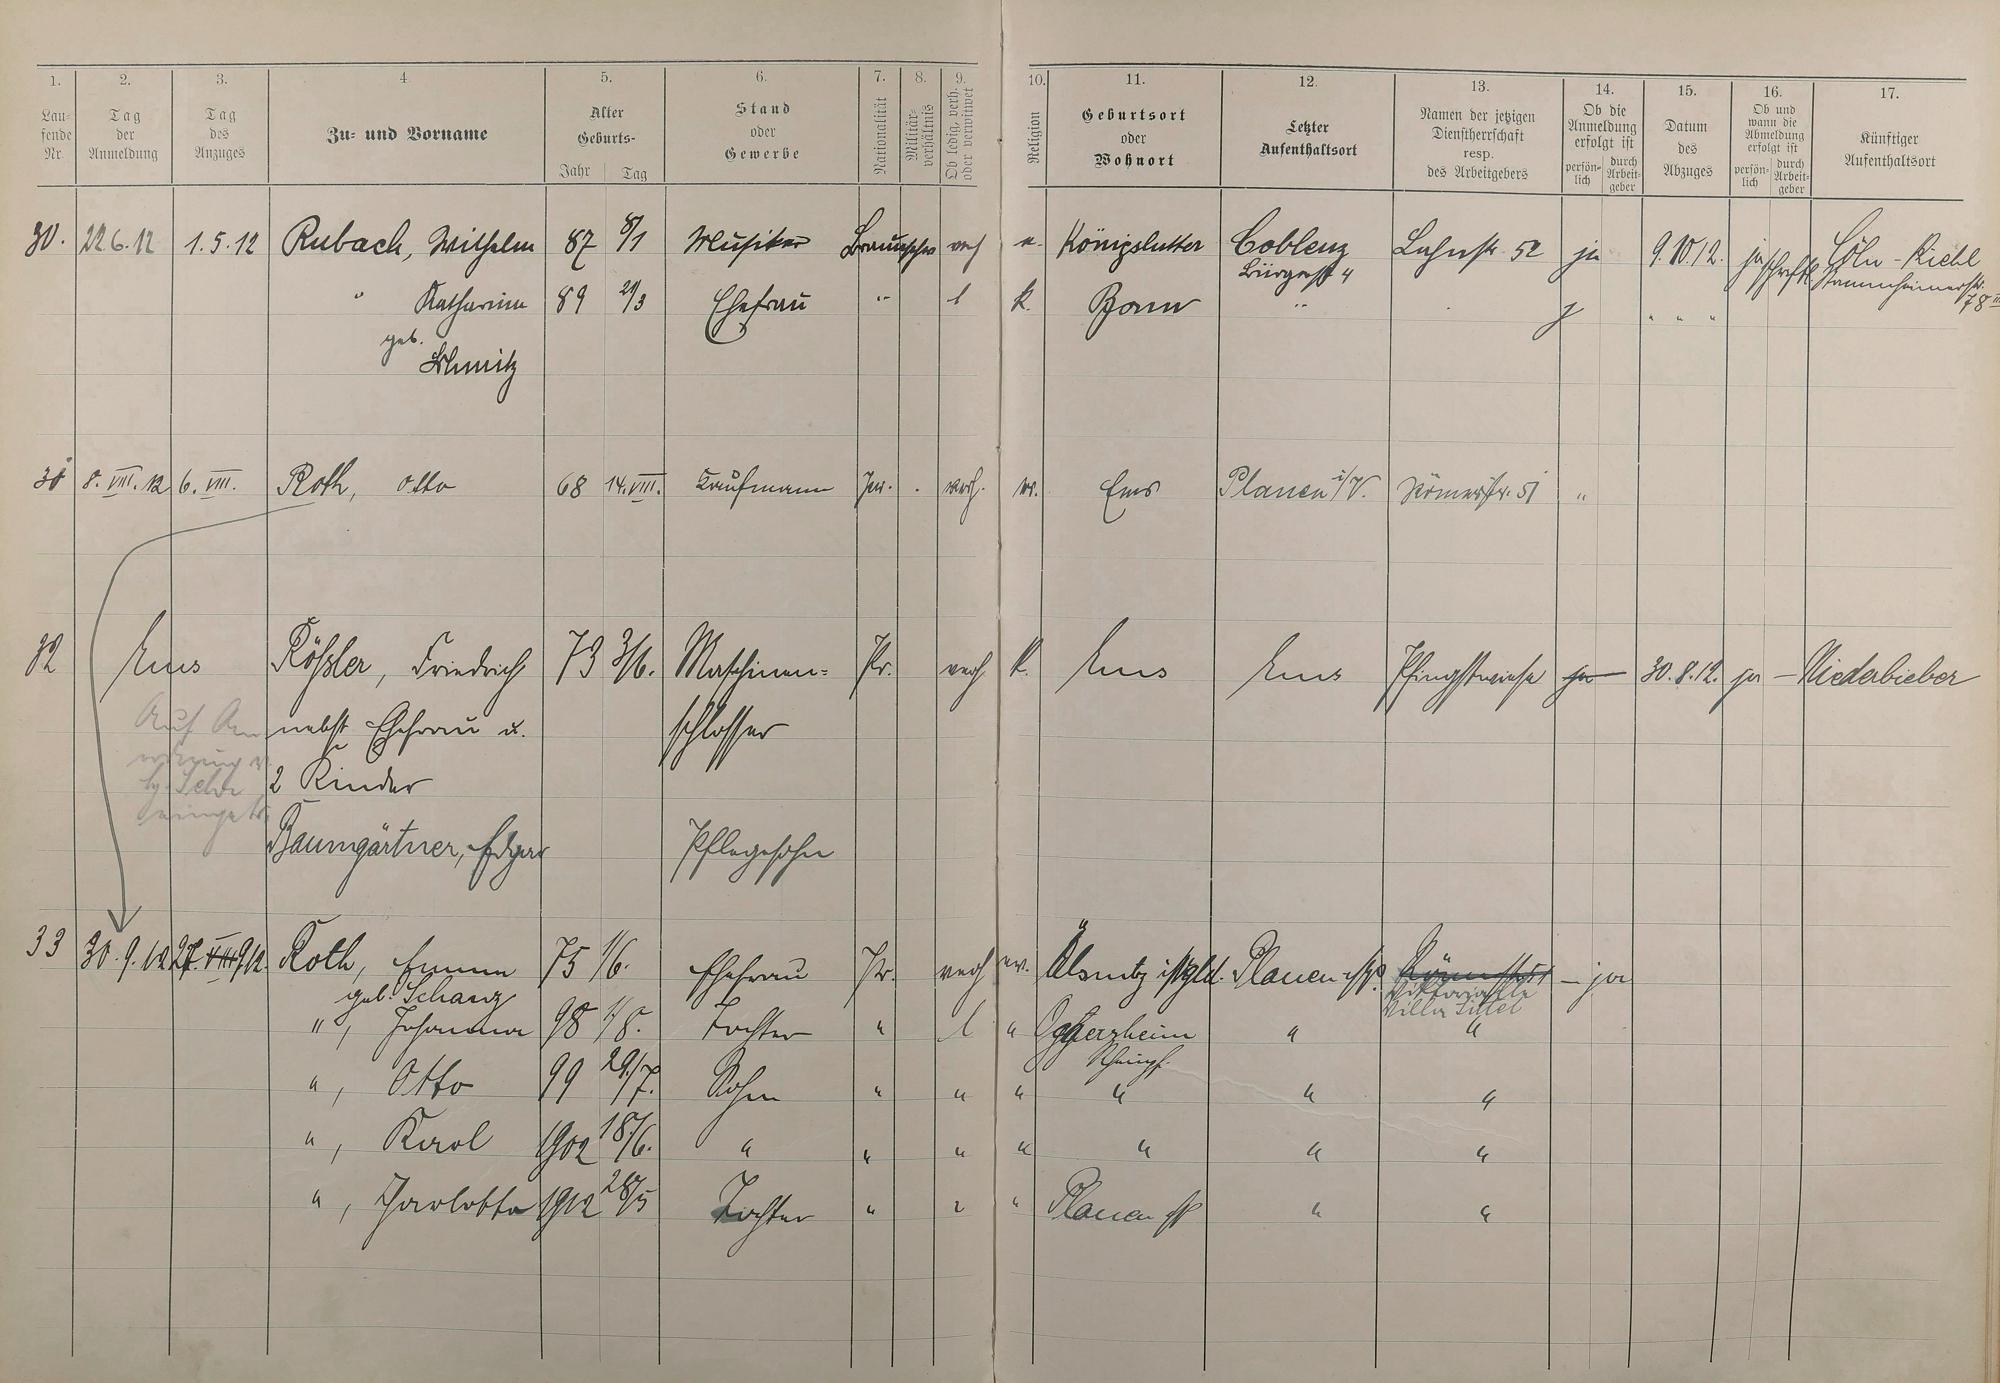 1. 2. 3. 4. 5. 6. 7. 8. 9. 10. 11. 12. 13. 14. 15. 16. 17.
Lau-
fende
Nr.
Tag
der
Anmeldung
Tag
des
Anzuges
Zu- und Vorname
Alter
Geburts-
Jahr Tag
Stand
oder
Gewerbe
Nationalität
Militär-
verhältnis
Ob ledig, verh.
oder verwitwet
Religion
Geburtsort
oder
Wohnort
Letzter
Aufenthaltsort
Namen der jetzigen
Dienstherrschaft
resp.
des Arbeitgebers
Ob die
Anmeldung
erfolgt ist
persön-
lich
durch
Arbeit-
geber
Datum
des
Abzuges
Ob und
wann die
Abmeldung
erfolgt ist
persön-
lich
durch
Arbeit-
geber
Künftiger
Aufenthaltsort
30. 22.6.12 1.5.12 Rubach, Wilhelm 87 8/1 Musiker Braunschw verh e. Königslutter Coblenz Lahnstr. 52 ja 9.10.12. ja schriftl Cöln-Riehl
Bürgerstr 4 Stammheimerstr.
78 III
" Katharina 89 21/3 Ehefrau " l k. Bonn " j " " "
geb.
Schmitz
31 8. VIII. 12 6. VIII. Roth, Otto 68 14. VIII. Kaufmann Pr. verh. ev. Ems Plauen i/V. Römerstr. 51 "
32 Ems Rößler, Friedrich 73 3/6. Maschinen- Pr. verh k. Ems Ems Pfingstwiese ja 30.8.12. ja – Niederbieber
Auf An nebst Ehefrau u. schlosser
2 Kinder
Baumgärtner, Edgar Pflegesohn
33 30.9.12 27. VIII 912. Roth, Emma 75 1/6. Ehefrau Pr. verh ev. Ölsnitz i/Vgtld. Plauen i/V. Römerstr 51 – ja
geb. Schanz Viktoriaallee
Villa
" , Johanna 98 1/8. Tochter " l " Oggersheim " "
Rheinpf.
" , Otto 99 29/7. Sohn " " " " " "
" , Karol 1902 18/6. " " " " " " "
" , Charlotte 1912 28/5 Tochter " " " Plauen i/V " "